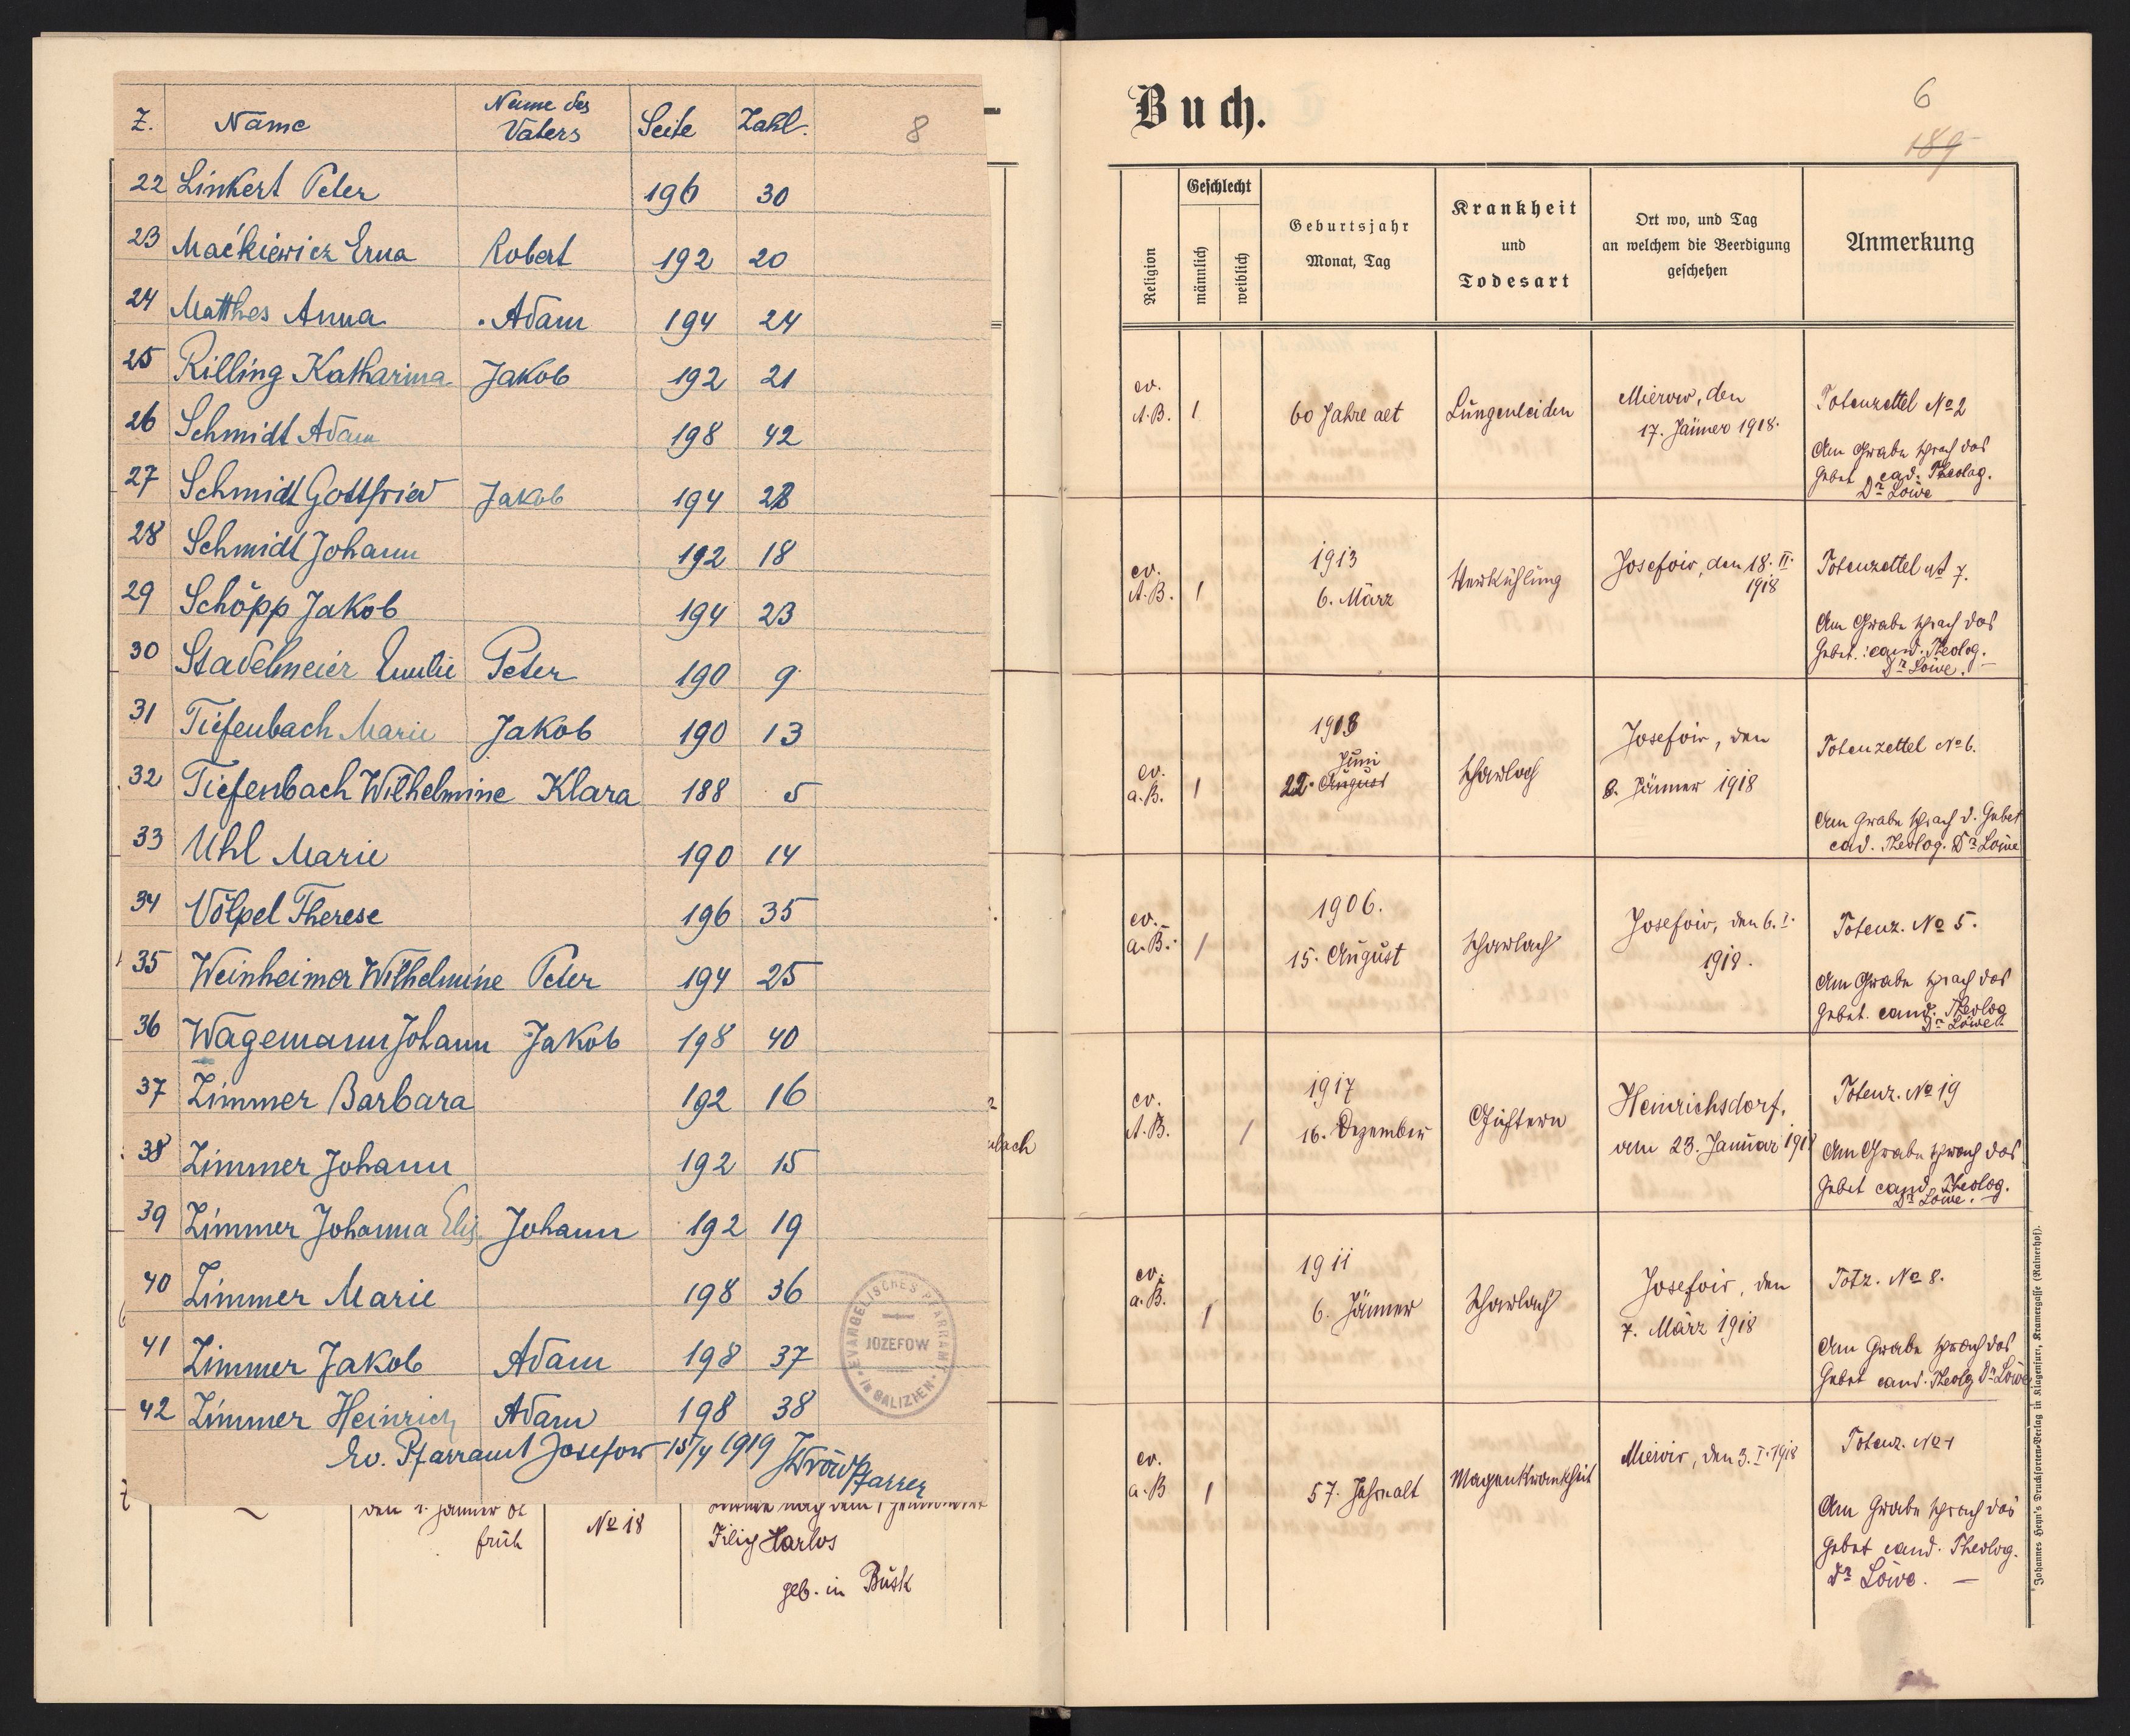 Z. Name Name des Vaters Seite Zahl. 8
22 Linkert Peter 196 30
23 Maćkiewicz Erna Robert 192 20
24 Matthes Anna Adam 194 24
25 Rilling Katharina Jakob 192 21
26 Schmidt Adam 198 42
27 Schmidt Gottfried Jakob 194 28
28 Schmidt Johann 192 18
29 Schöpp Jakob 194 23
30 Stadelmeier Emilie Peter 190 9
31 Tiefenbach Marie Jakob 190 13
32 Tiefenbach Wilhelmine Klara 188 5
33 Uhl Marie 190 14
34 Völpel Therese 196 35
35 Weinheimer Wilhelmine Peter 194 25
36 Wagemann Johann Jakob 198 40
37 Zimmer Barbara 192 16
38 Zimmer Johann 192 15
39 Zimmer Johanna Elis. Johann 192 19
40 Zimmer Marie 198 36
41 Zimmer Jakob Adam 198 37
42 Zimmer Heinrich Adam 198 38
Ev. Pfarramt Josefow 15/4 1919
Pfarrer
EVANGELISCHES PFARRAMT
JOZEFOW
in GALIZIEN
bach
früh
No 18
Filip Harlos
geb. in Busk
Buch.
6
189
Religion
Geschlecht
männlich
weiblich
Geburtsjahr
Monat, Tag
Krankheit
und
Todesart
Ort wo, und Tag
an welchem die Beerdigung
geschehen
Anmerkung
ev.
A.B. 1 60 Jahre alt Lungenleiden
Mierow, den
17. Jänner 1918.
Totenzettel No 2
Am Grabe sprach das
Gebet cad. Theolog.
Dr Löwe
ev.
A.B. 1
1913
6. März
Verkühlung
Josefow, den 18. II.
1918
Totenzettel No 7.
Am Grabe sprach das
Gebet. cand. Theolog.
Dr Löwe.
ev.
a.B. 1
1908
Juni
22. August
Scharlach
Josefow, den
8. Jänner 1918
Totenzettel No 6.
Am Grabe sprach d. Gebet
cad. Theolog. Dr Löwe
ev.
a.B. 1
1906.
15. August
Scharlach
Josefow, den 6. I.
1918.
Totenz. No 5.
Am Grabe sprach das
Gebet. cand. Theolog
Dr Löwe.
ev.
A.B. 1
1917
16. Dezember
Gichtern
Heinrichsdorf,
am 23. Januar 1918
Totenz. No 19
Am Grabe sprach das
Gebet cand. Theolog.
Dr Löwe.
ev.
a.B. 1
1911
6. Jänner
Scharlach
Josefow, den
7. März 1918
Totz. No 8.
Am Grabe sprach das
Gebet cand. Theolg Dr Löwe
ev.
a.B 1
57. Jahre alt
Magenkrankheit
Mierow, den 3. I. 1918
Totenz. No 1
Am Grabe sprach das
Gebet cand. Theolog.
Dr Löwe.
Johannes Heyn's Drucksorten-Verlag in Klagenfurt, Kramergasse (Rainerhof).